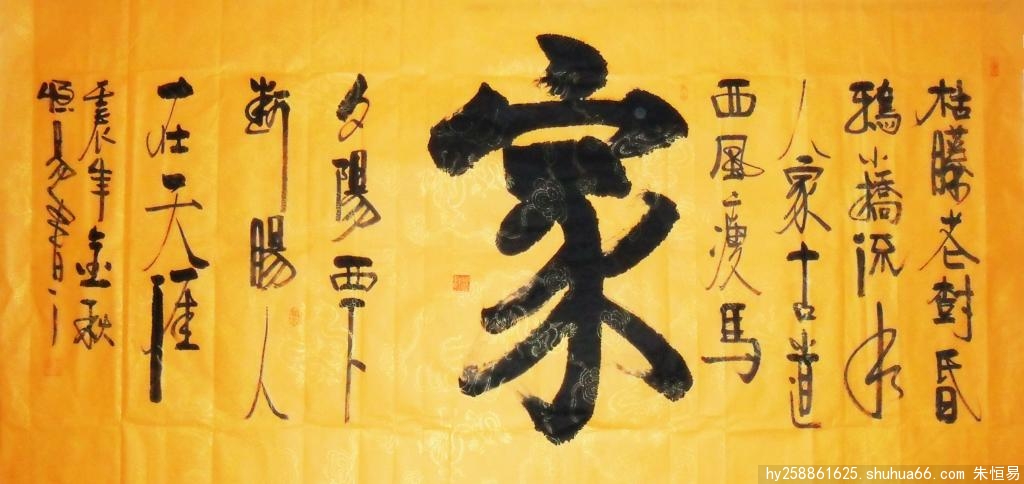 枯藤老樹昏
鴉小橋流水
人家古道
西風瘦馬
家
夕陽西下
斷腸人
在天涯
年金秋
恒易書
hy258861625.shuhua66.com 朱恒易